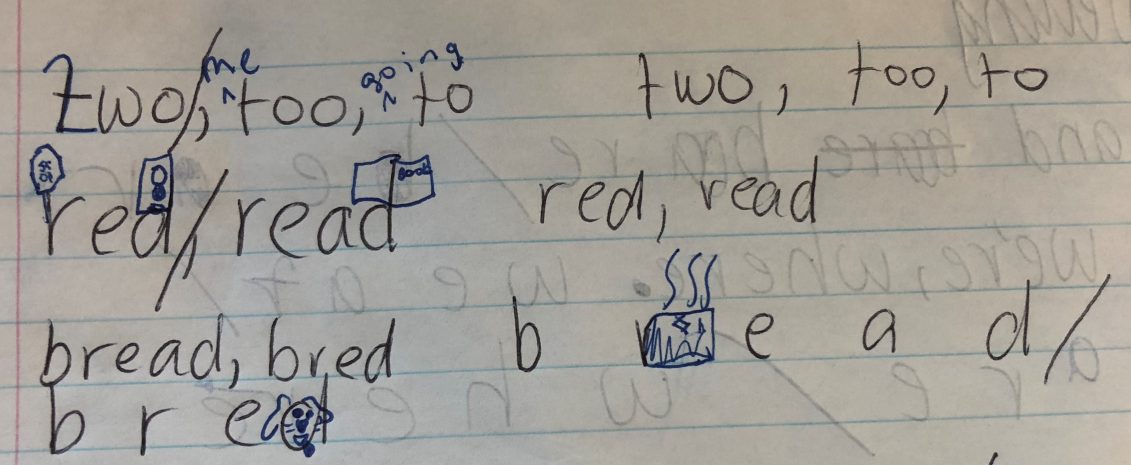 me going
two/, ^too, ^to two, too, to
red/, read BOOK red, read
bread, bred b r e a d/
b r e d